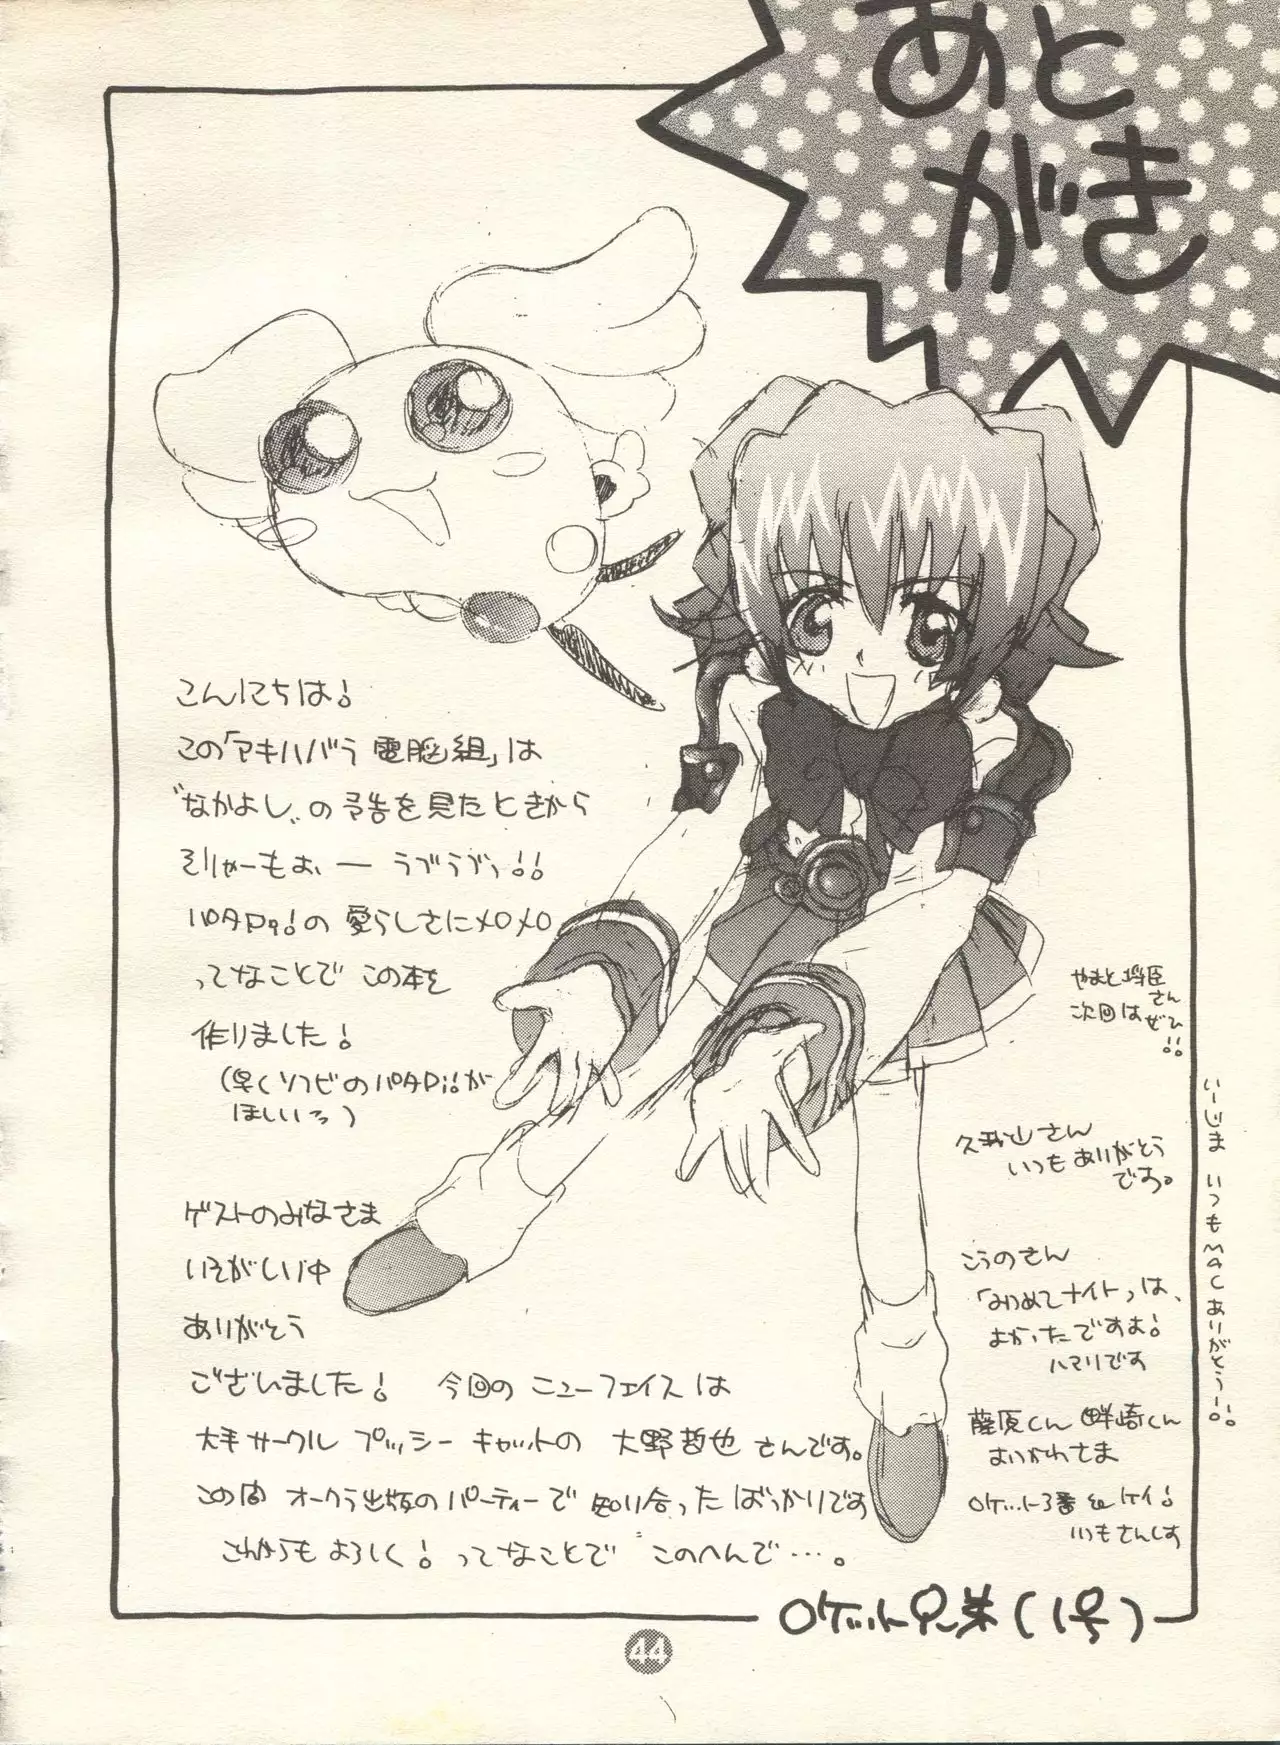 あと
がき
こんにちは!
この「アキハバラ電脳組」は
"なかよし"の予告を見たときから
そりゃーもぉ、ー ラブラブっ!!
パタPi!の愛らしさにメロメロ
ってなことで この本を
作りました!
(早くソフビのパタPi!が
ほしいっ)
ゲストのみなさま
いそがしい中
ありがとう
ございました! 今回の ニューフェイスは
大手サークル プッシーキャットの 大野哲也さんです。
この間 オークラ出版のパーティーで 知り合ったばっかりです
これからもよろしく! ってなことで このへんで…。
やまと将臣さん
次回はぜひ!!
久我山さん
いつもありがとう
です。
こうのさん
「みつめてナイト」は、
よかったですよ!
ハマリです
藤原くん 畔崎くん
おいかわさま
ロケット3番 &ケイ!
いつもさんしす
いーじま いつもMACありがとうー!!
ロケット兄弟(1号)
44